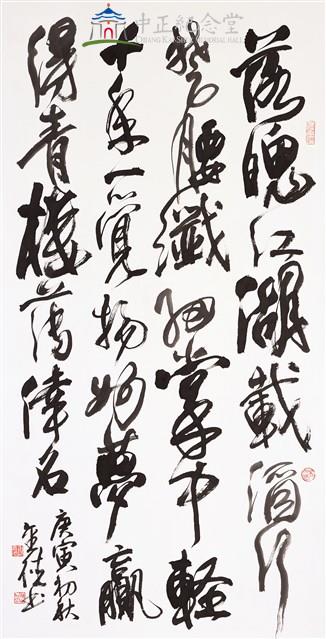 中正紀念堂
CHIANG KAI-SHEK MEMORIAL HALL
落魄江湖載酒行
楚腰纖細掌中輕
十年一覺揚州夢贏
得青樓薄倖名
庚寅初秋
書